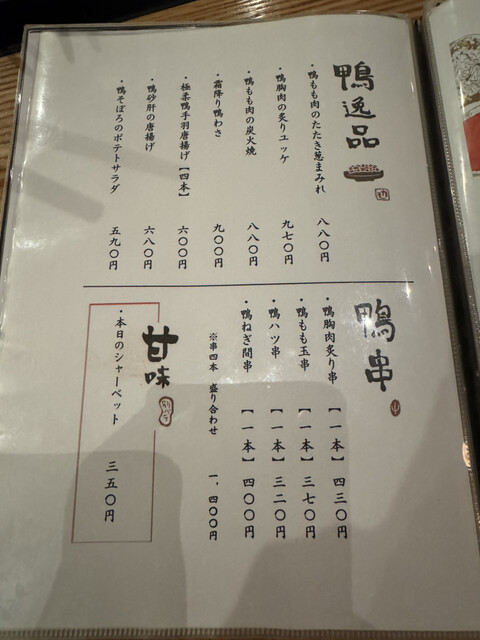 鴨逸品
・鴨もも肉のたたき葱まみれ 八八〇円
・鴨胸肉の炙りユッケ 九七〇円
・鴨もも肉の炭火焼 八八〇円
・霜降り鴨わさ 九〇〇円
・極柔鴨手羽唐揚げ【四本】 六〇〇円
・鴨砂肝の唐揚げ 六八〇円
・鴨そぼろのポテトサラダ 五九〇円
鴨串
・鴨胸肉炙り串 【一本】 四三〇円
・鴨もも玉串 【一本】 三七〇円
・鴨ハツ串 【一本】 三二〇円
・鴨ねぎ間串 【一本】 四〇〇円
※串四本 盛り合わせ 一、四〇〇円
甘味
・本日のシャーベット 三五〇円